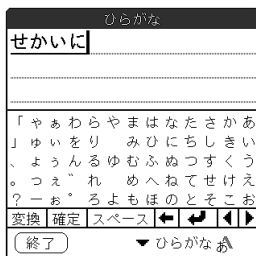 ひらがな
せかいに
「 ゃ ぁ わ ら や ま は な た さ か あ
」 ゅ ぃ を り み ひ に ち し き い
、 ょ ぅ ん る ゆ む ふ ぬ つ す く う
。 っ ぇ ゛ れ め へ ね て せ け え
? ー ぉ ゜ ろ よ も ほ の と そ こ お
変換 確定 スペース
終了 ひらがな あA